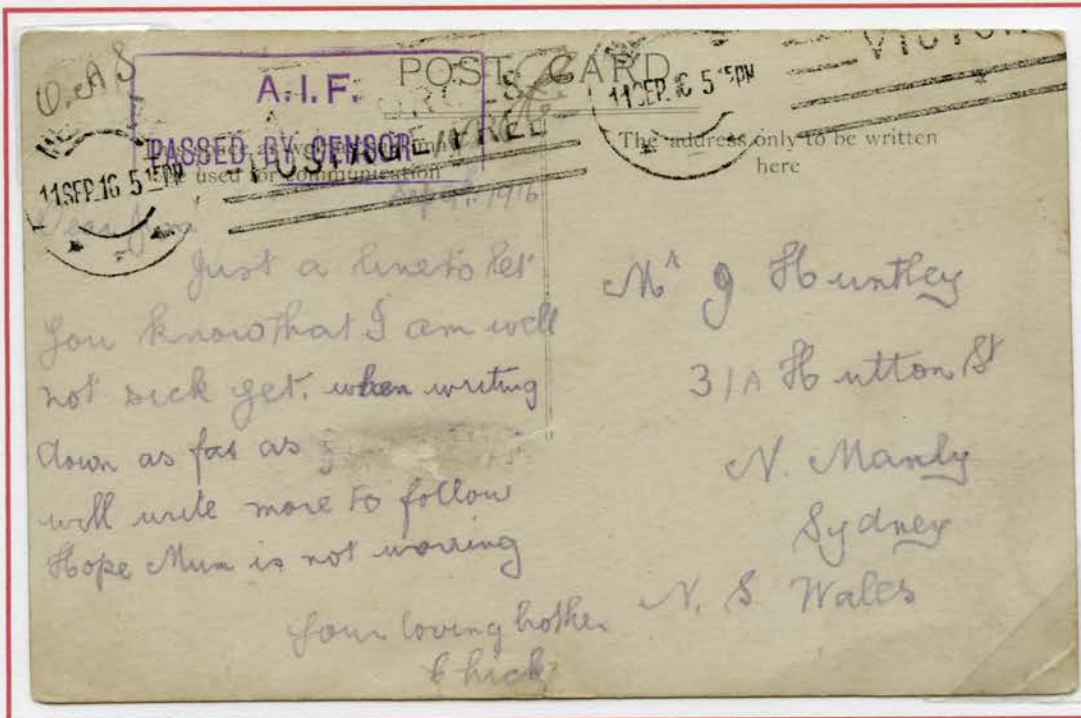 O.A.S
A.I.F.
PASSED BY CENSOR
POST CARD
11 SEP. 16 5 15 PM
POSTAGE FREE
11 SEP. 16 5 15 PM
VICTOR
used for communication
The address only to be written
here
1916
Dear Jim
Just a line to let
you know that I am well
not sick yet. when writing
down as far as
will write more to follow
Hope Mum is not worring
Your loving brother
Chick
Mr J Huntley
31A Hutton St
N. Manly
Sydney
N. S. Wales